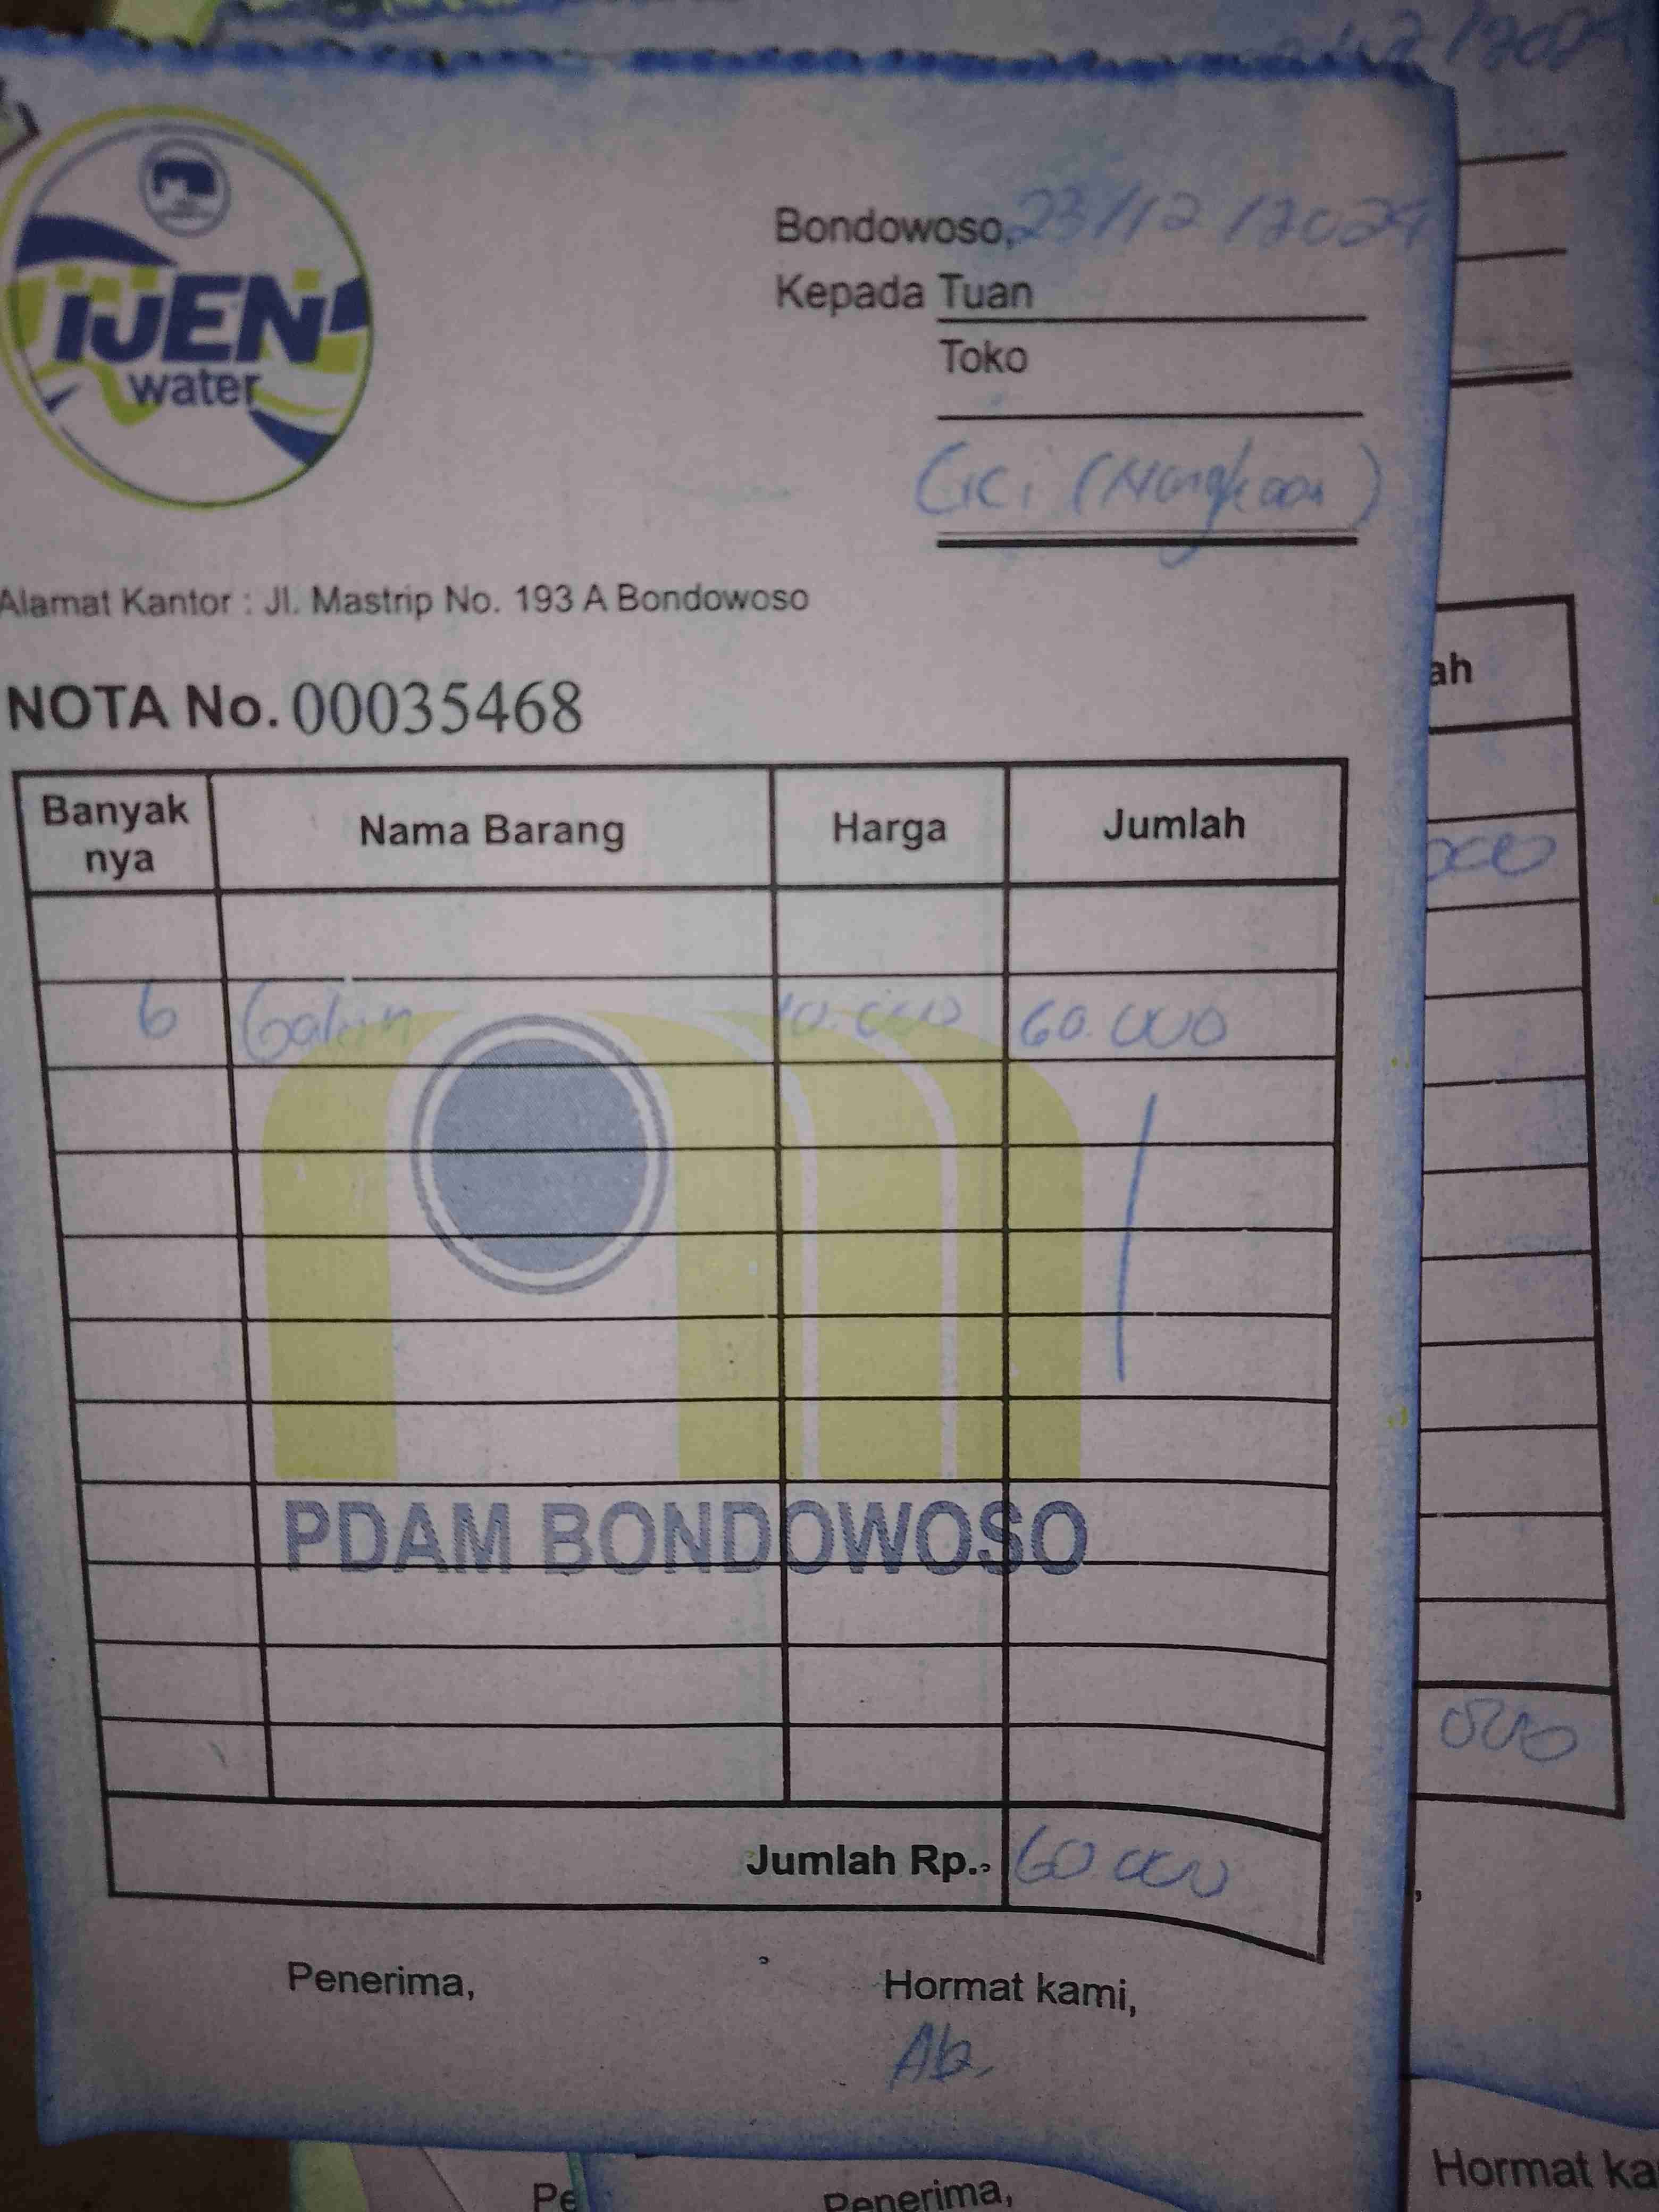 IJEN
water
Bondowoso, 23/12/2024
Kepada Tuan
Toko
Cici (Nangkaan)
Alamat Kantor : Jl. Mastrip No. 193 A Bondowoso
NOTA No. 00035468
Banyak nya Nama Barang Harga Jumlah
6 Galon 10.000 60.000
PDAM BONDOWOSO
Jumlah Rp. 60 000
Penerima, Hormat kami,
Ab
ah
000
000
Penerima,
Hormat ka
Pe